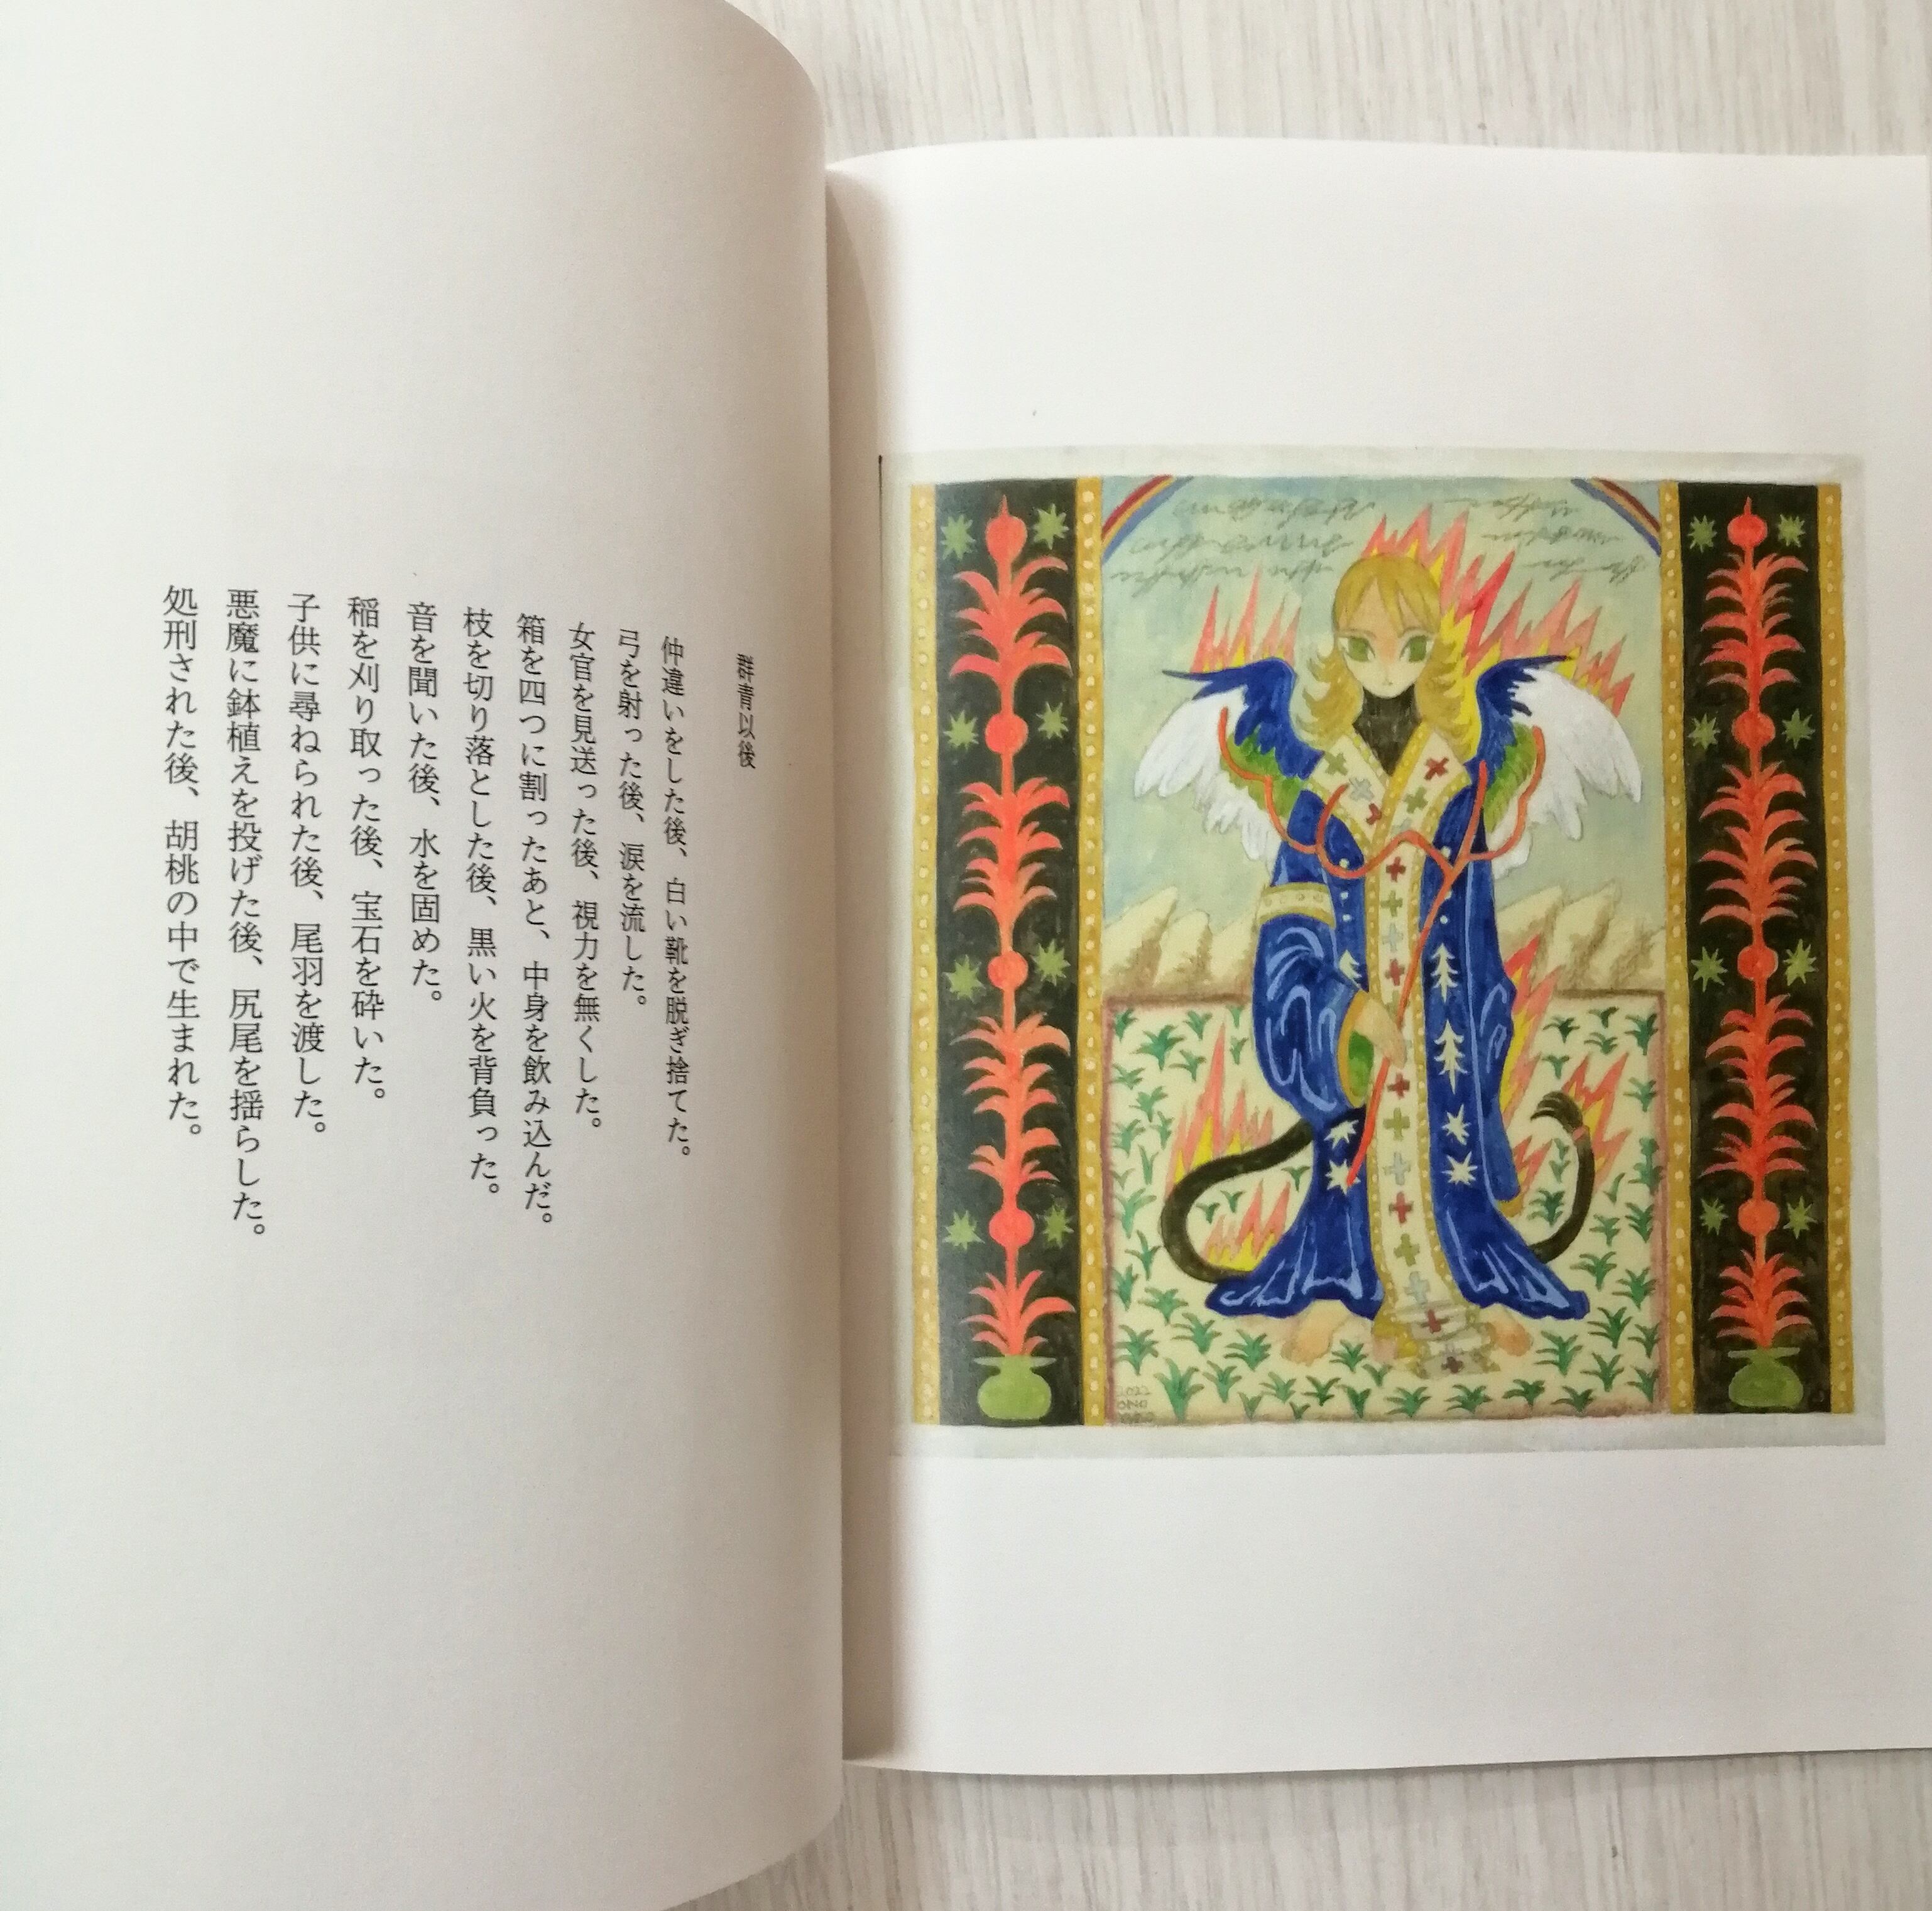 群青以後
仲違いをした後、白い靴を脱ぎ捨てた。
弓を射った後、涙を流した。
女官を見送った後、視力を無くした。
箱を四つに割ったあと、中身を飲み込んだ。
枝を切り落とした後、黒い火を背負った。
音を聞いた後、水を固めた。
稲を刈り取った後、宝石を砕いた。
子供に尋ねられた後、尾羽を渡した。
悪魔に鉢植えを投げた後、尻尾を揺らした。
処刑された後、胡桃の中で生まれた。
2022